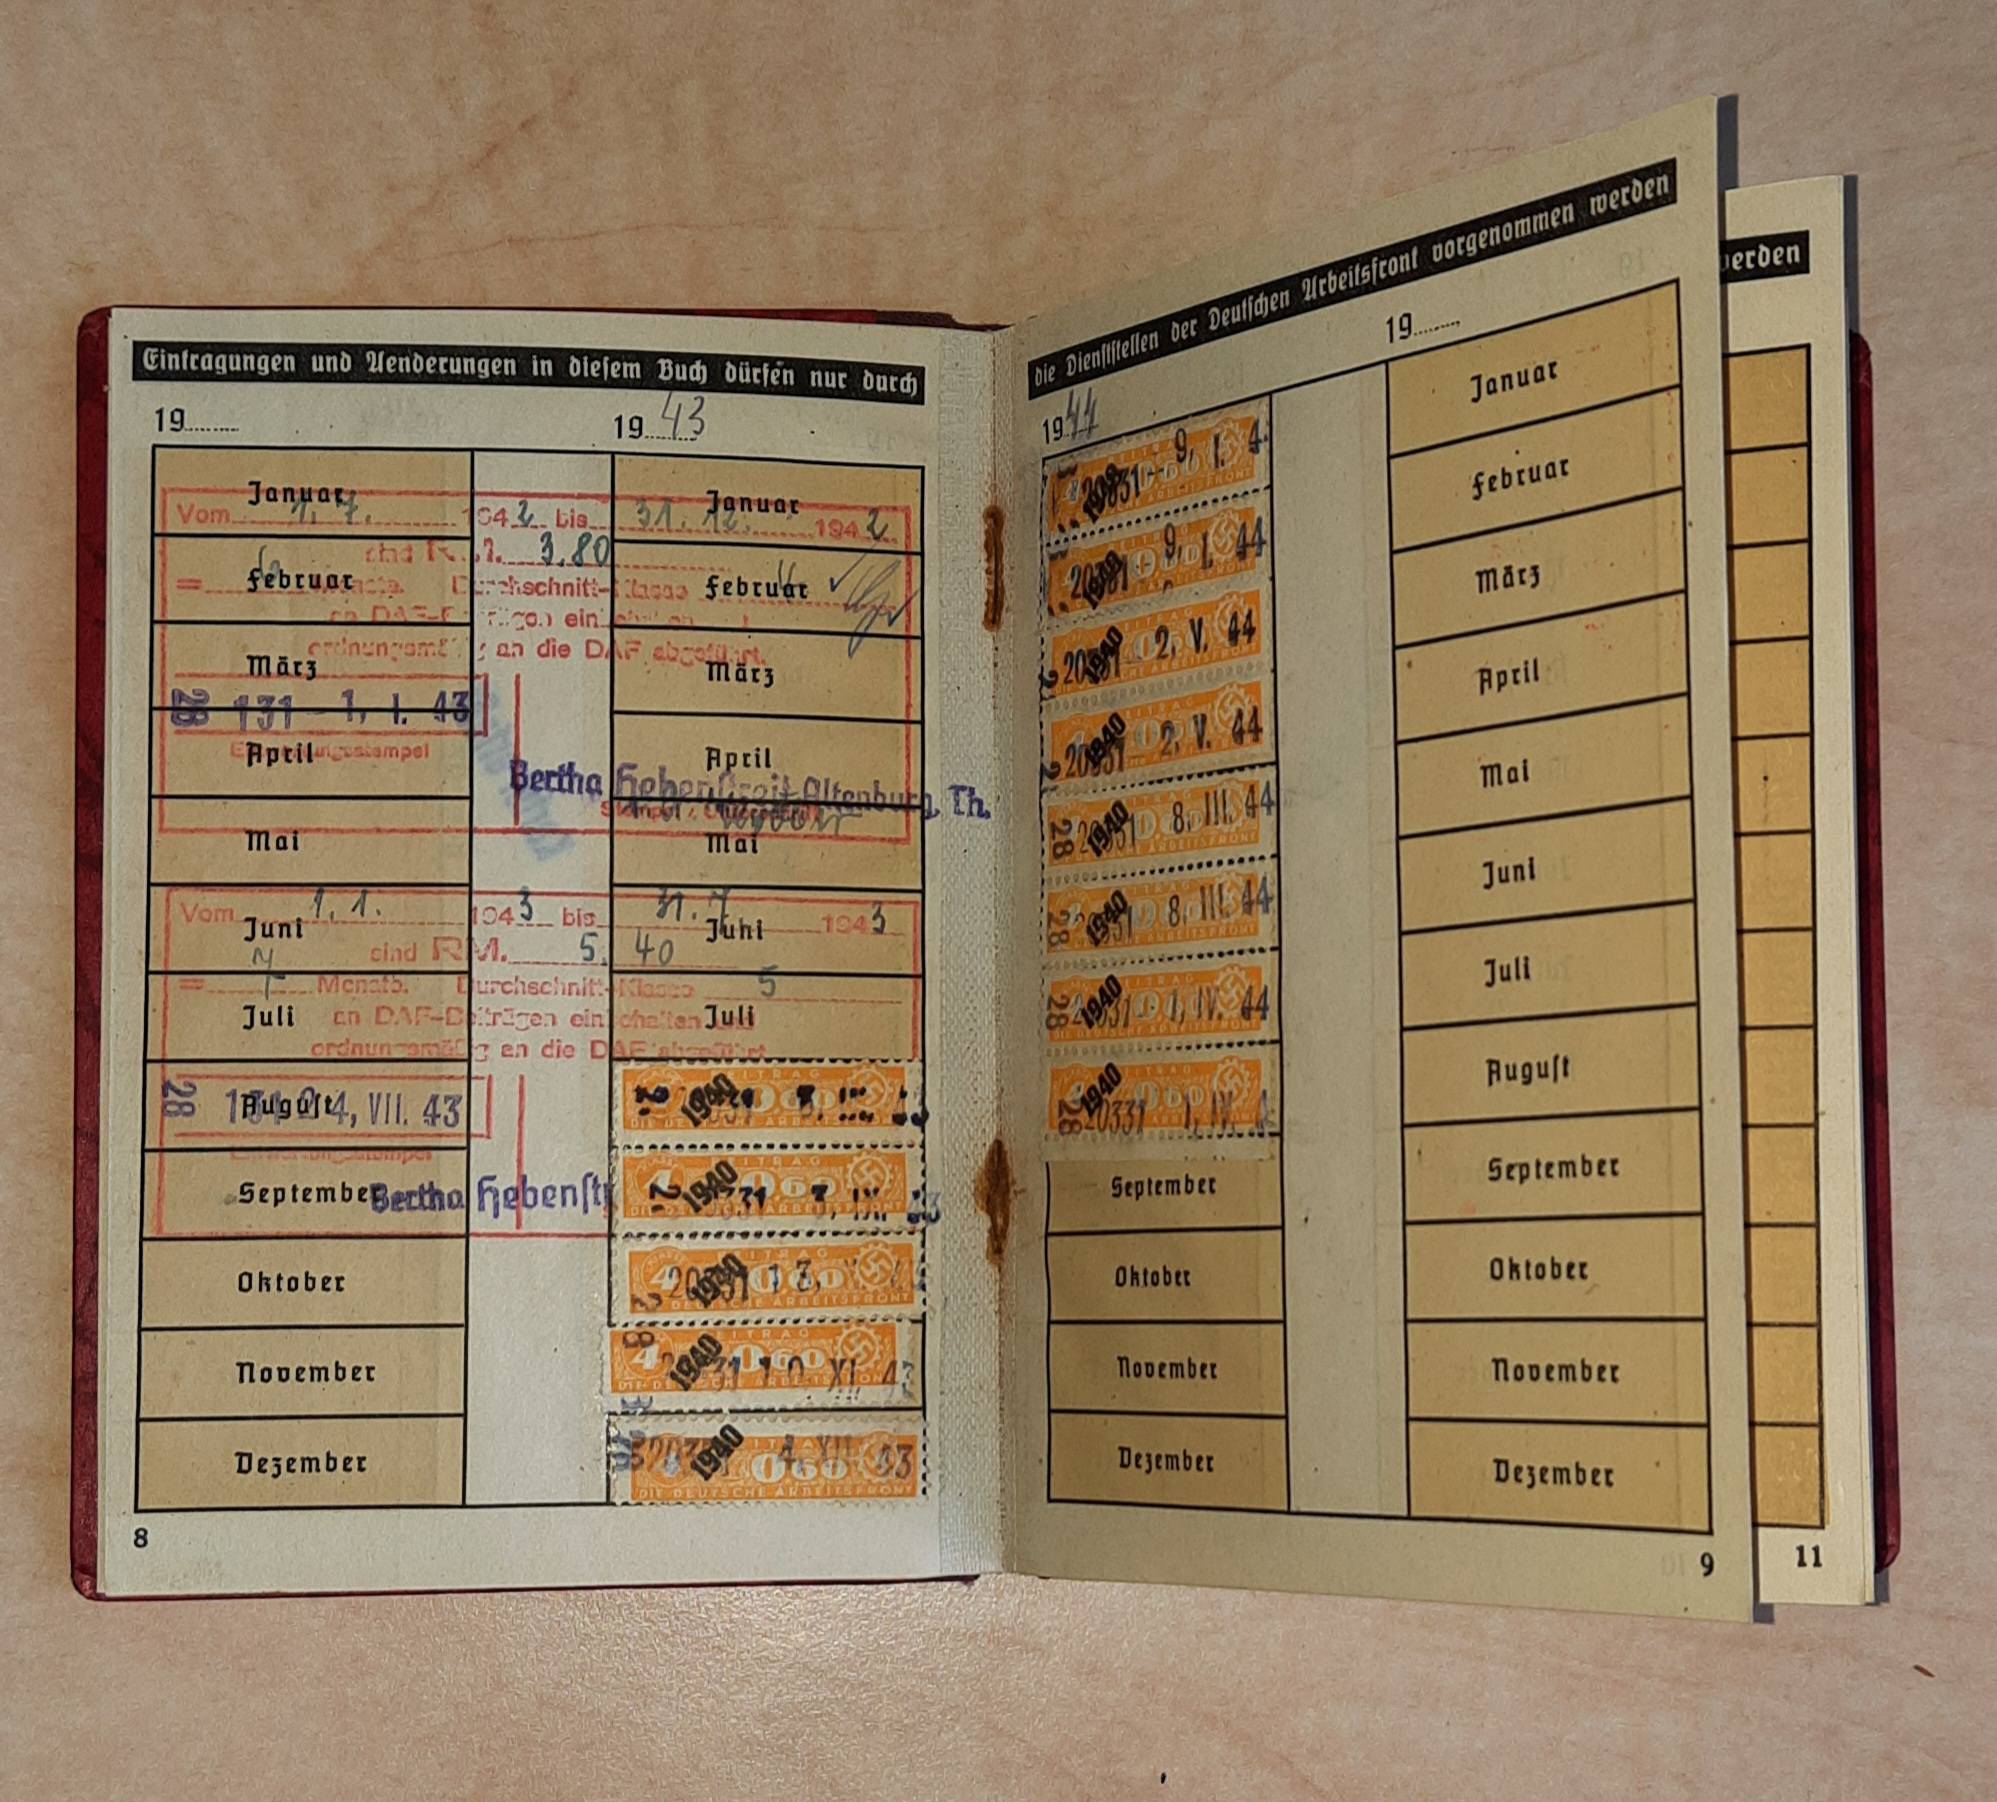 Eintragungen und Aenderungen in diesem Buch dürfen nur durch
19........ 1943
Januar Januar
Vom 1. 7. 1942 bis 31. 12. 1942
sind R 3.80
Februar Februar
Durchschnitt-Klasse
ordnungsmä an die DAF abgeführt.
März März
28 131 - 1, I. 43
April April
Bertha Hebenstreit Altenburg, Th.
Mai Mai
Vom 1. 1. 1943 bis 31. 7 1943
Juni Juni
sind RM. 5. 40
= Monatb. Durchschnitt-Klasse 5
Juli Juli
an DAF-Beiträgen einbehalten und
ordnungsmäßig an die DAF abgeführt
August
28 131 24, VII. 43
1940
September
Bertha Hebenstr
1940 060
Oktober
1940 060
DEUTSCHE ARBEITSFRONT
November
4 1940 060 XI. 43
Dezember
1940 060 4. XII. 43
DIE DEUTSCHE ARBEITSFRONT
8
die Dienststellen der Deutschen Arbeitsfront vorgenommen werden
1944 19........
9. I. 4
Januar
1940 9. I. 44
Februar
1940 2. V. 44
März
1940 2. V. 44
April
28 1940 8. III. 44
Mai
28 1940 8. III. 44
Juni
28 1940 1, IV. 44
Juli
28 1940 20331 1, IV.
August
September September
Oktober Oktober
November November
Dezember Dezember
9
werden
11